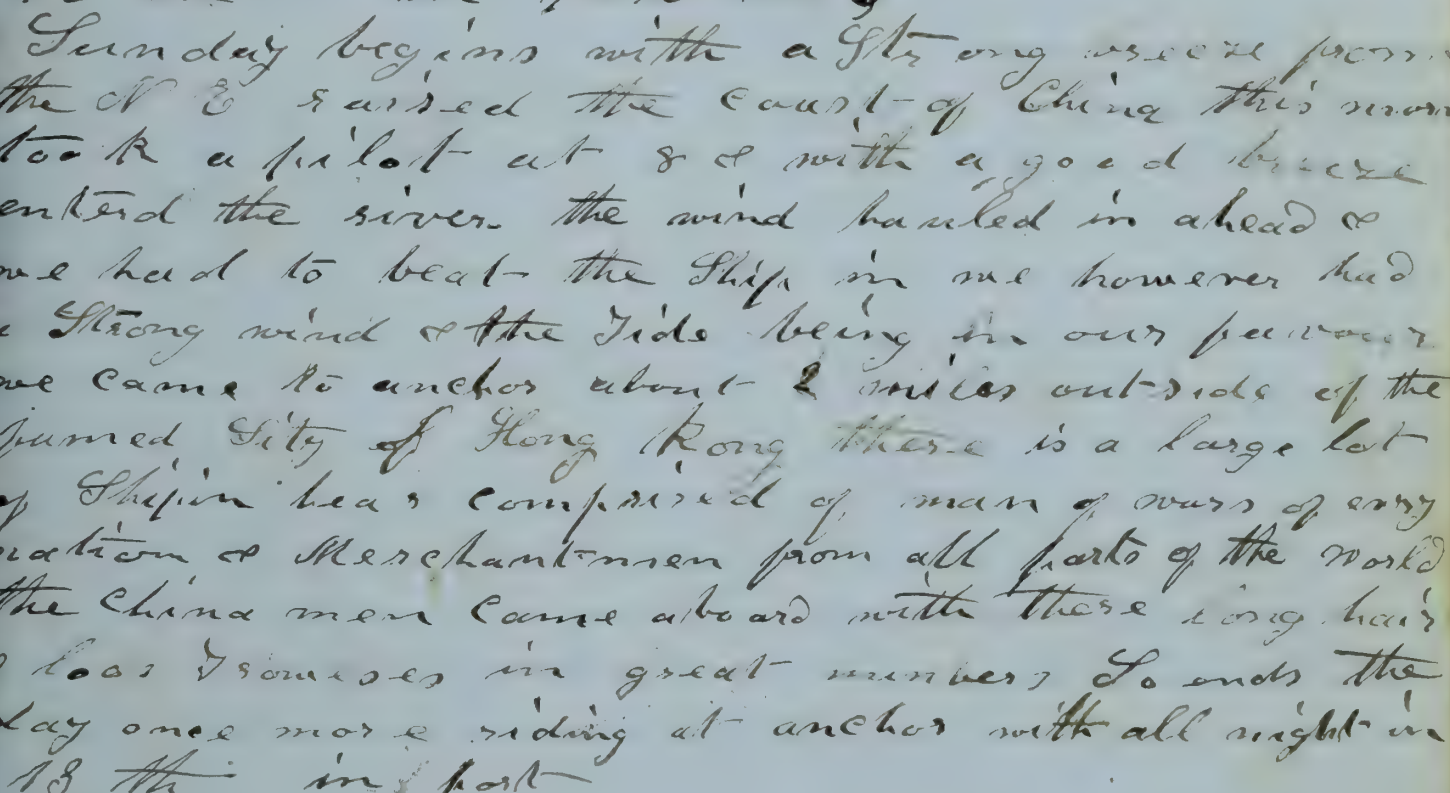 Sunday begins with a Strong breeze from
the N E raised the coast of China this morn
took a pilot at 8 & with a good breeze
enterd the river. the wind hauled in ahead &
we had to beat the Ship in we however had
a Strong wind & the Tide being in our favour
we came to anchor about 2 miles outside of the
famed City of Hong Kong there is a large lot
of Shipin hear comprised of man of wars of evry
nation & Merchantmen from all parts of the world
the China men came aboard with there long hair
& loos Trowises in great numbers So ends the
day once more riding at anchor with all night in
18 th in port